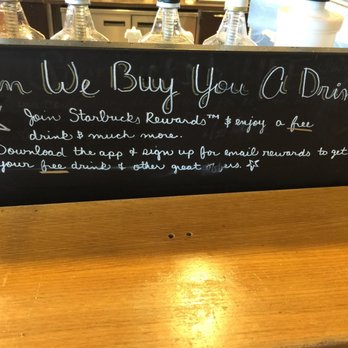 n We Buy You A Drin
Join Starbucks Rewards™ & enjoy a free
drink & much more.
Download the app & sign up for email rewards to get
your free drink & other great